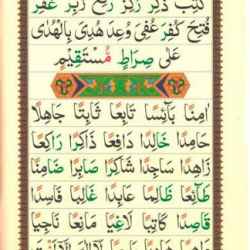 كُتِبَ ذُكِرَ رُكِزَ رُفِعَ زُبِرَ غُفِرَ
فُتِحَ كُفِرَ عُفِيَ وُعِدَ هُدِيَ بِالْهُدٰى
عَلٰى صِرَاطٍ مُسْتَقِيْمٍ
اٰمِنًا بَآئِسًا تَابِعًا ثَابِتًا جَاهِلًا
حَامِدًا خَالِدًا دَافِعًا ذَاكِرًا رَاكِعًا
زَاهِدًا سَاجِدًا شَاكِرًا صَابِرًا ضَامِنًا
طَآئِعًا ظَالِمًا عَابِدًا غَالِبًا فَاسِدًا
قَاصِدًا كَاتِبًا لَاغِيًا مَانِعًا نَاجِيًا